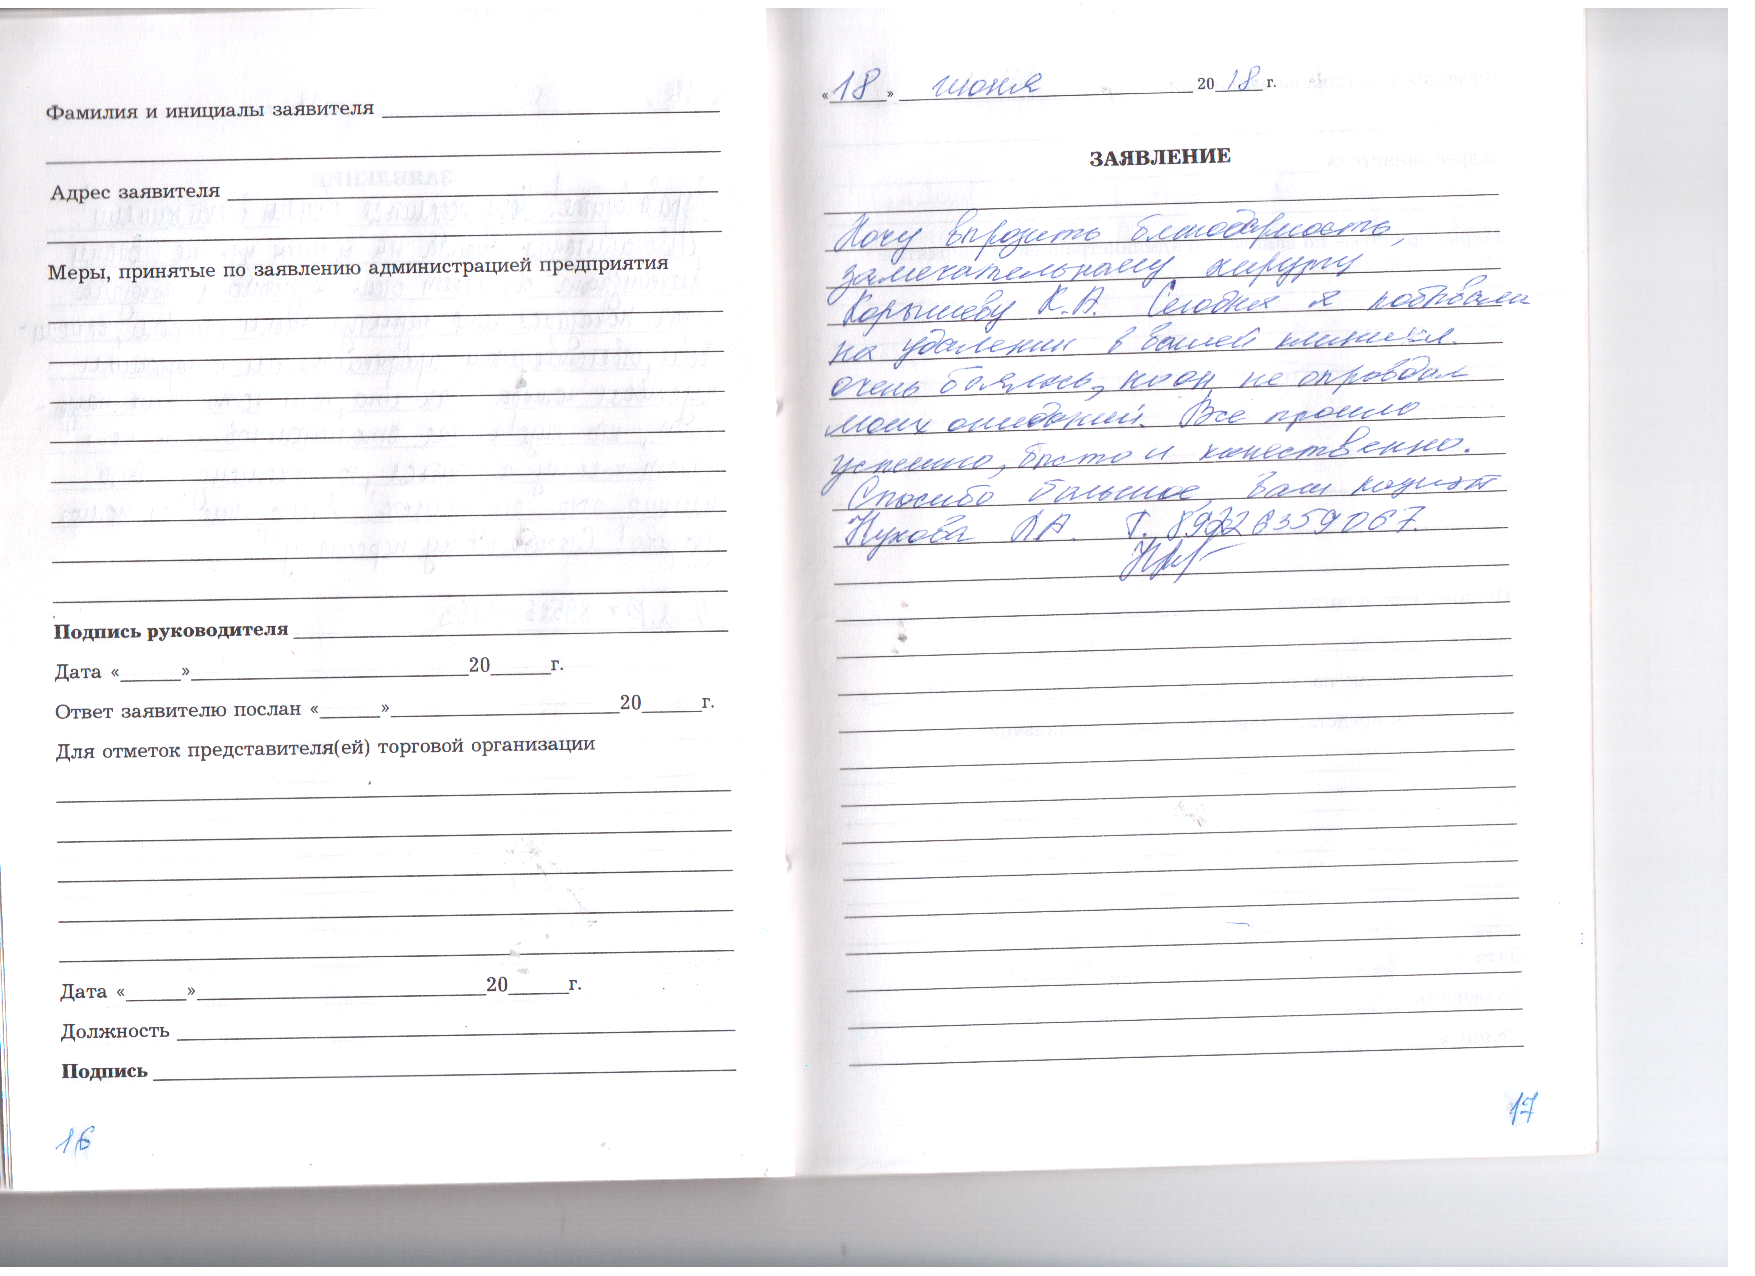 Фамилия и инициалы заявителя
Адрес заявителя
Меры, принятые по заявлению администрацией предприятия
Подпись руководителя
Дата «      »                    20      г.
Ответ заявителю послан «      »                    20      г.
Для отметок представителя(ей) торговой организации
Дата «      »                    20      г.
Должность
Подпись
16
«18» июня 2018 г.
ЗАЯВЛЕНИЕ
Хочу выразить благодарность,
замечательному хирургу
Корышеву К.А. Сегодня я побывала
на удалении в вашей клинике.
очень боялась, но он не оправдал
моих ожиданий. Все прошло
успешно, быстро и качественно.
Спасибо большое, Ваш пациент
Кухова Т. 89226359067.
17